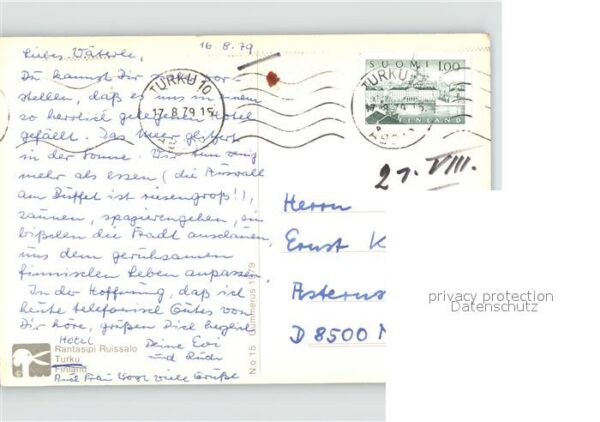 16.8.79
Liebes Väterle,
Du kannst Dir vor-
stellen, daß es uns in einem
so herrlich gelegenen Hotel
gefällt. Das Meer glitzert
in der Sonne. Wir tun wenig
mehr als essen (die Auswahl
am Büffet ist riesengroß!),
saunen, spazierengehen, ein
bißchen die Stadt anschauen,
uns dem geruhsamen
finnischen Leben anpassen.
In der Hoffnung, daß ich
heute telefonisch Gutes von
Dir höre, grüßen Dich
Deine Evi
und Rudi
Hotel
Rantasipi Ruissalo
Turku
Finland
Auch Frau viele Grüße
N:o 15 Gummerus 1979
TURKU 10
17.8.79.15
ÅBO 10
SUOMI 1,00
FINLAND
TURKU
ÅBO
21. VIII.
Herrn
Ernst K
Asterns
D 8500 N
privacy protection
Datenschutz